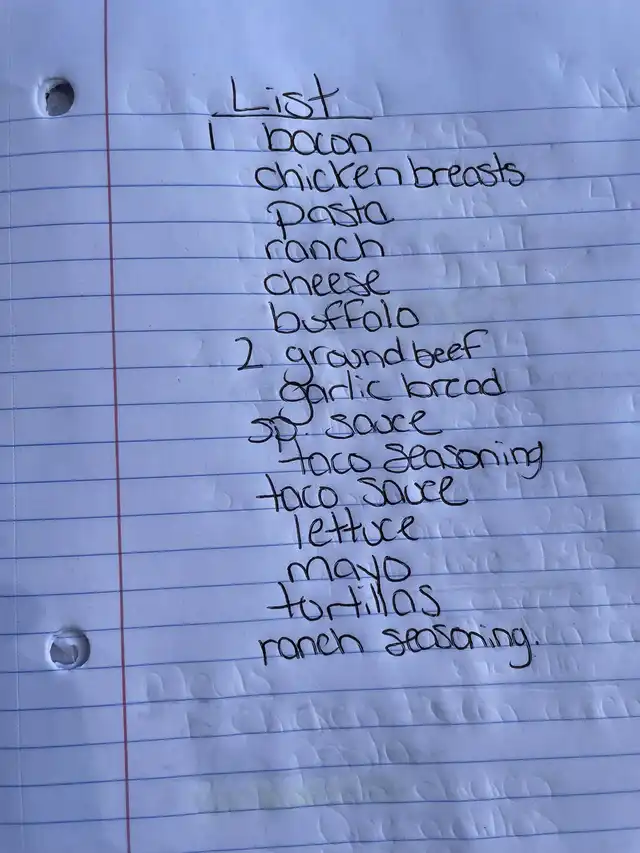 List
1 bacon
chicken breasts
pasta
ranch
cheese
buffalo
2 ground beef
garlic bread
sp. sauce
taco seasoning
taco sauce
lettuce
mayo
tortillas
ranch seasoning.